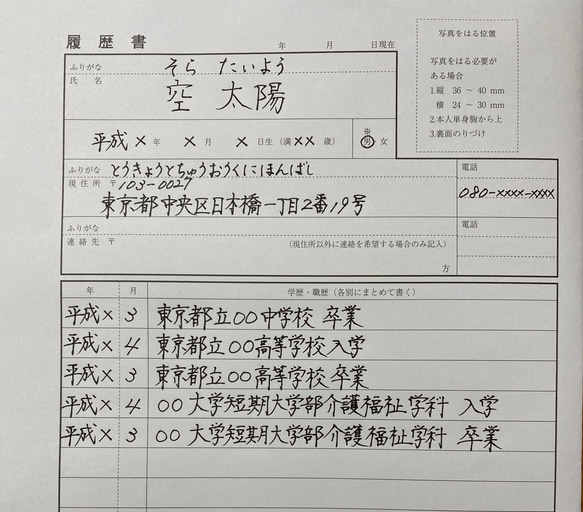 履歴書
年 月 日現在
写真をはる位置
写真をはる必要が
ある場合
1.縦 36 ～ 40 mm
横 24 ～ 30 mm
2.本人単身胸から上
3.裏面のりづけ
ふりがな そら たいよう
氏 名 空 太陽
平成 × 年 × 月 × 日生 (満 ×× 歳) ※ 男 女
ふりがな とうきょうとちゅうおうくにほんばし
現住所 〒103-0027
東京都中央区日本橋一丁目2番19号
電話
080-××××-××××
ふりがな
連絡先 〒 (現住所以外に連絡を希望する場合のみ記入)
方
電話
年 月 学歴・職歴 (各別にまとめて書く)
平成× 3 東京都立○○中学校 卒業
平成× 4 東京都立○○高等学校入学
平成× 3 東京都立○○高等学校卒業
平成× 4 ○○大学短期大学部介護福祉学科 入学
平成× 3 ○○大学短期大学部介護福祉学科 卒業